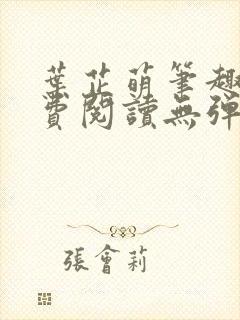 葉芷萌筆趣
費閱讀無彈
張會莉